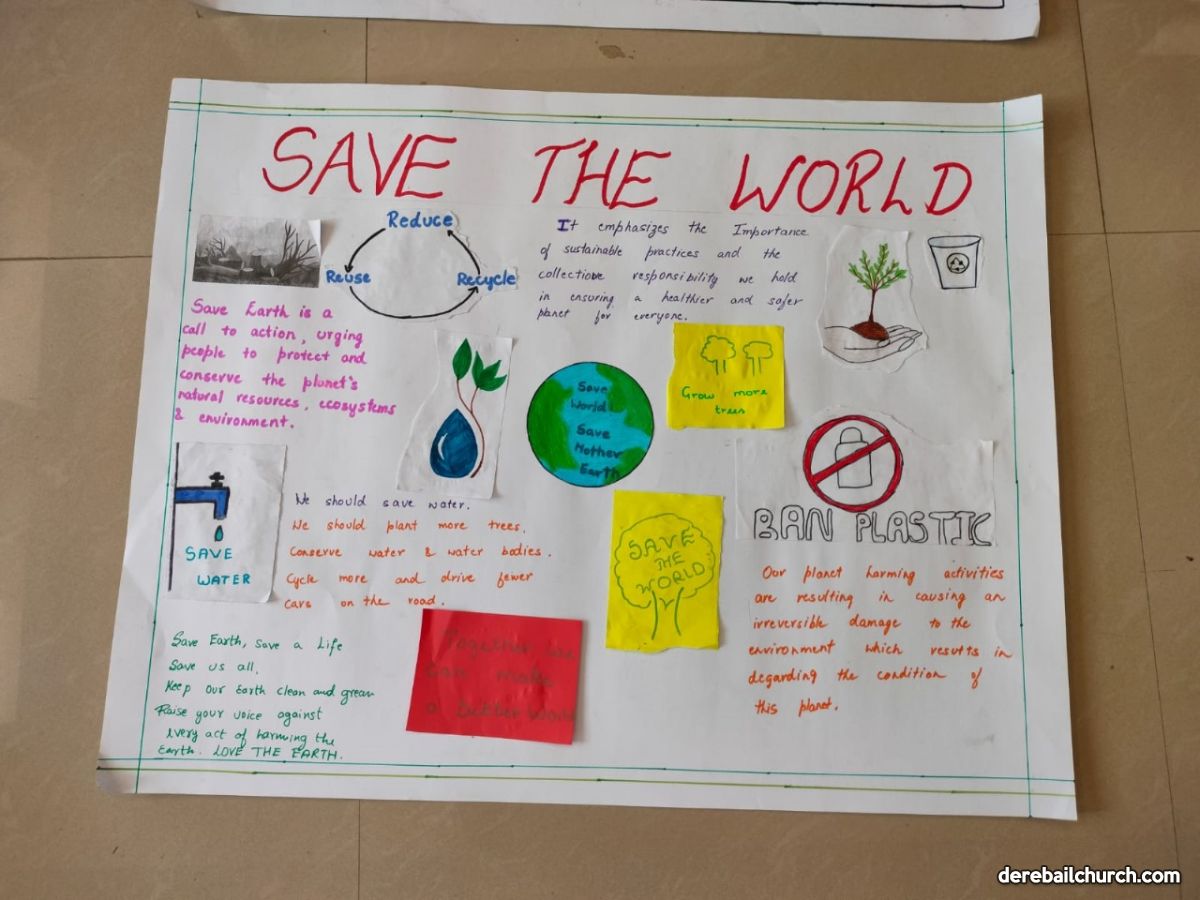 SAVE THE WORLD
Reduce
Reuse
Recycle
It emphasizes the Importance
of sustainable practices and the
collectiove responsibility we hold
in ensuring a healthier and safer
planet for everyone.
Save Earth is a
call to action, urging
people to protect and
conserve the planet's
natural resources, ecosystems
& environment.
Grow more
trees
Save
World
Save
Mother
Earth
BAN PLASTIC
SAVE
WATER
We should save water.
We should plant more trees.
Conserve water & water bodies.
Cycle more and drive fewer
cars on the road.
SAVE
THE
WORLD
Our planet harming activities
are resulting in causing an
irreversible damage to the
environment which results in
degarding the condition of
this planet.
Save Earth, save a Life
Save us all,
Keep our Earth clean and green
Raise your voice against
every act of harming the
Earth. LOVE THE EARTH.
Together we
can make
a better world
derebailchurch.com